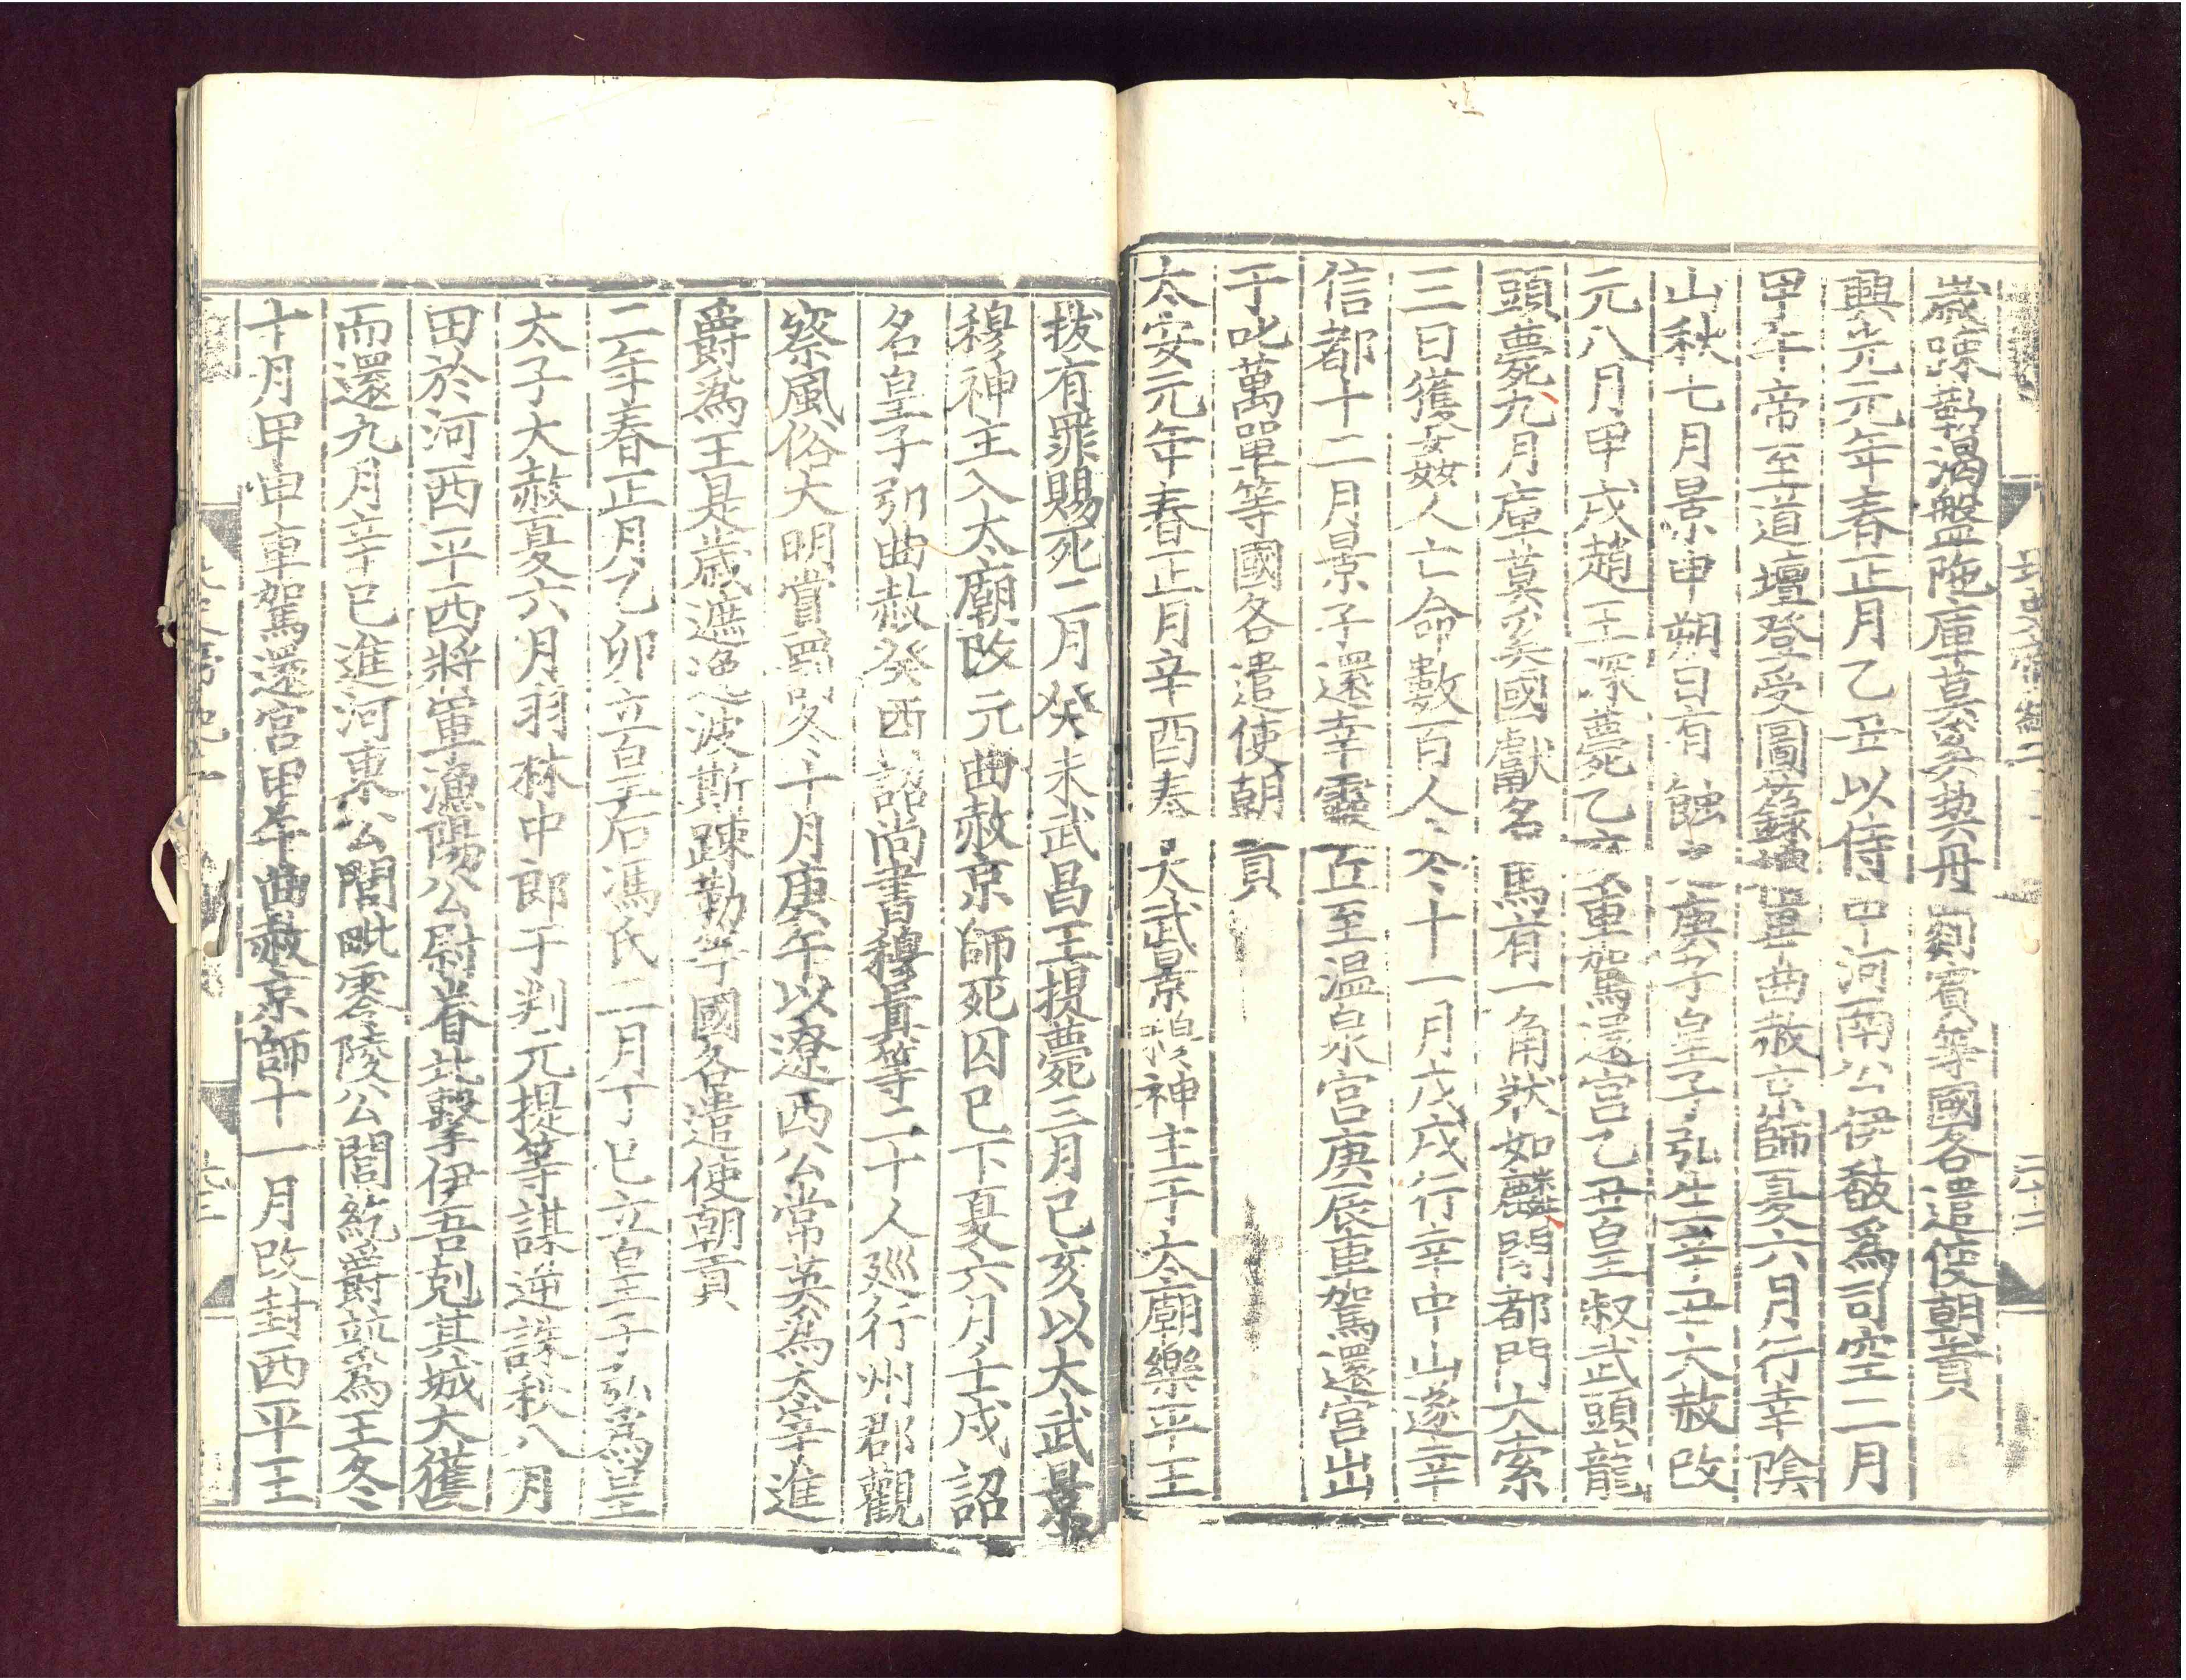 歲疎勒渴盤陁庫莫奚契丹罽賓等國各遣使朝貢
興光元年春正月乙丑以侍中河南公伊馛爲司空二月
甲午帝至道壇登受圖籙曲赦京師夏六月行幸陰
山秋七月景申朔日有蝕之庚子皇子弘生辛丑大赦改
元八月甲戌趙王深薨乙亥車駕還宮乙丑皇叔武頭龍
頭薨九月庫莫奚國獻名馬有一角狀如麟閉都門大索
三日獲姦人亡命數百人冬十一月戊戌行幸中山遂幸
信都十二月景子還幸靈丘至溫泉宮庚辰車駕還宮出
于叱萬單等國各遣使朝貢
太安元年春正月辛酉奉太武景穆神主于太廟樂平王
拔有罪賜死二月癸未武昌王提薨三月己亥以太武景
穆神主入太廟改元曲赦京師死囚已下夏六月壬戌詔
名皇子弘曲赦癸酉詔尚書穆眞等二十人廵行州郡觀
察風俗大明賞罰冬十月庚午以遼西公常英爲太宰進
爵爲王是歲遮逸波斯疎勒等國各遣使朝貢
二年春正月乙卯立皇后馮氏二月丁巳立皇子弘爲皇
太子大赦夏六月羽林中郎于判元提等謀逆誅秋八月
田於河西平西將軍漁陽公尉眷北擊伊吾剋其城大獲
而還九月辛巳進河東公閭毗零陵公閭紇爵並爲王冬
十月甲申車駕還宮甲午曲赦京師十一月改封西平王